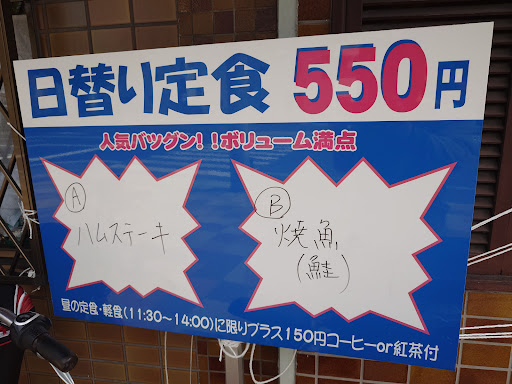 日替り定食 550円
人気バツグン!!ボリューム満点
Ⓐ
ハムステーキ
Ⓑ
焼魚
(鮭)
昼の定食・軽食(11:30~14:00)に限りプラス150円コーヒーor紅茶付